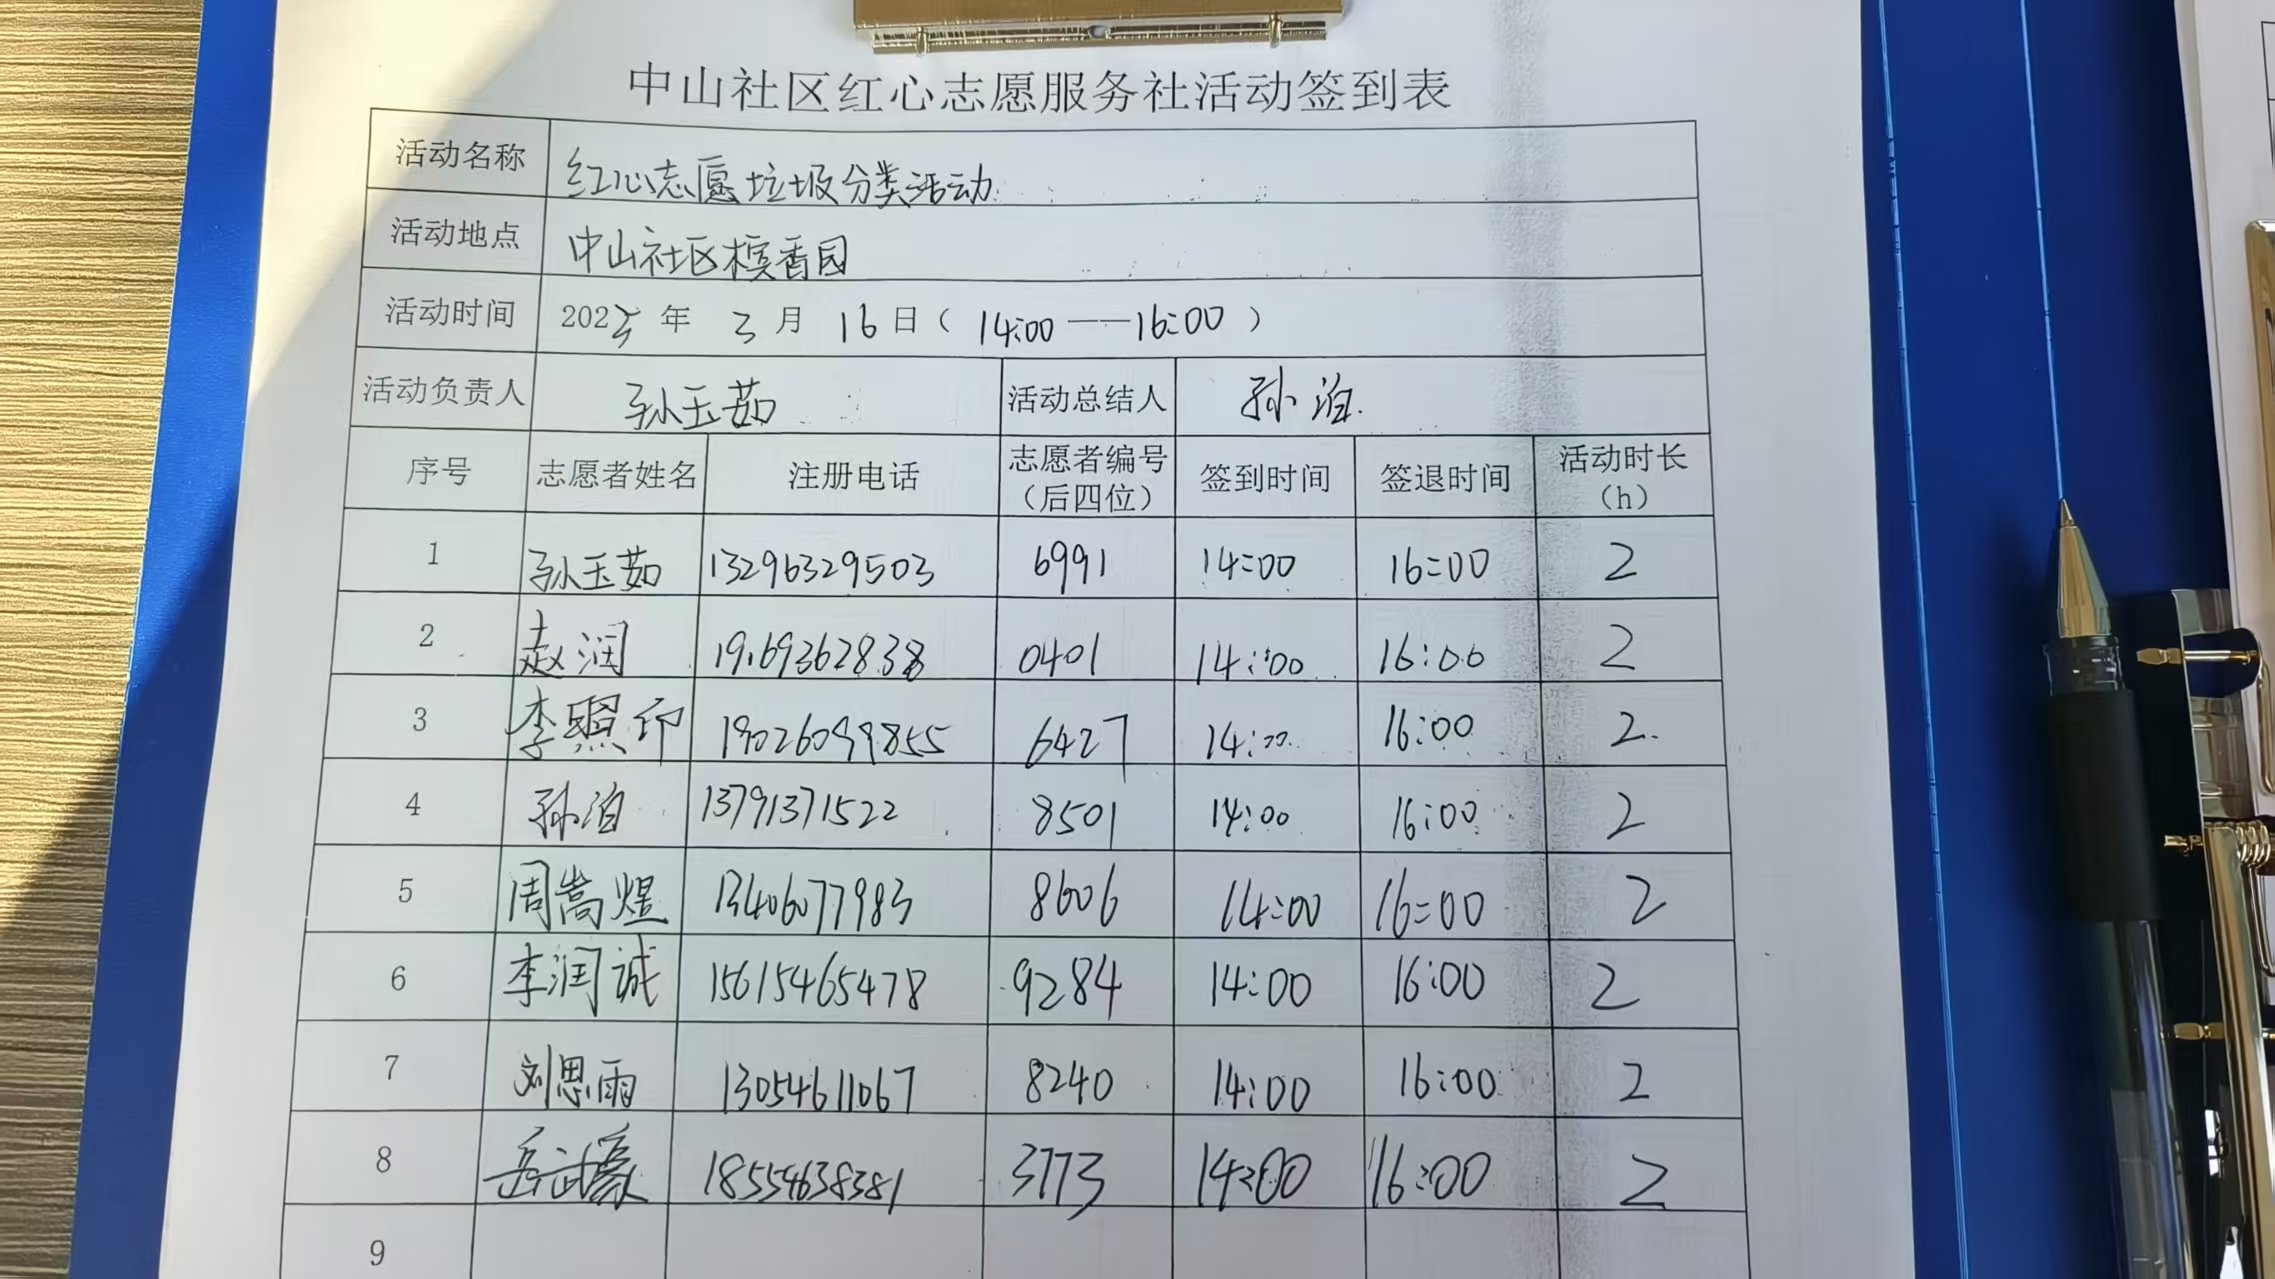 中山社区红心志愿服务社活动签到表
活动名称 红心志愿垃圾分类活动
活动地点 中山社区槟香园
活动时间 2025年 3月 16日( 14:00——16:00 )
活动负责人 孙玉茹 活动总结人 孙泊
序号 志愿者姓名 注册电话 志愿者编号(后四位) 签到时间 签退时间 活动时长(h)
1 孙玉茹 13296329503 6991 14:00 16:00 2
2 赵润 19169362838 0401 14:00 16:00 2
3 李照印 19026099855 6427 14:00 16:00 2
4 孙泊 13791371522 8501 14:00 16:00 2
5 周嵩煜 13406077983 8606 14:00 16:00 2
6 李润诚 15615465478 9284 14:00 16:00 2
7 刘思雨 13054611067 8240 14:00 16:00 2
8 岳武豪 18554638381 3773 14:00 16:00 2
9